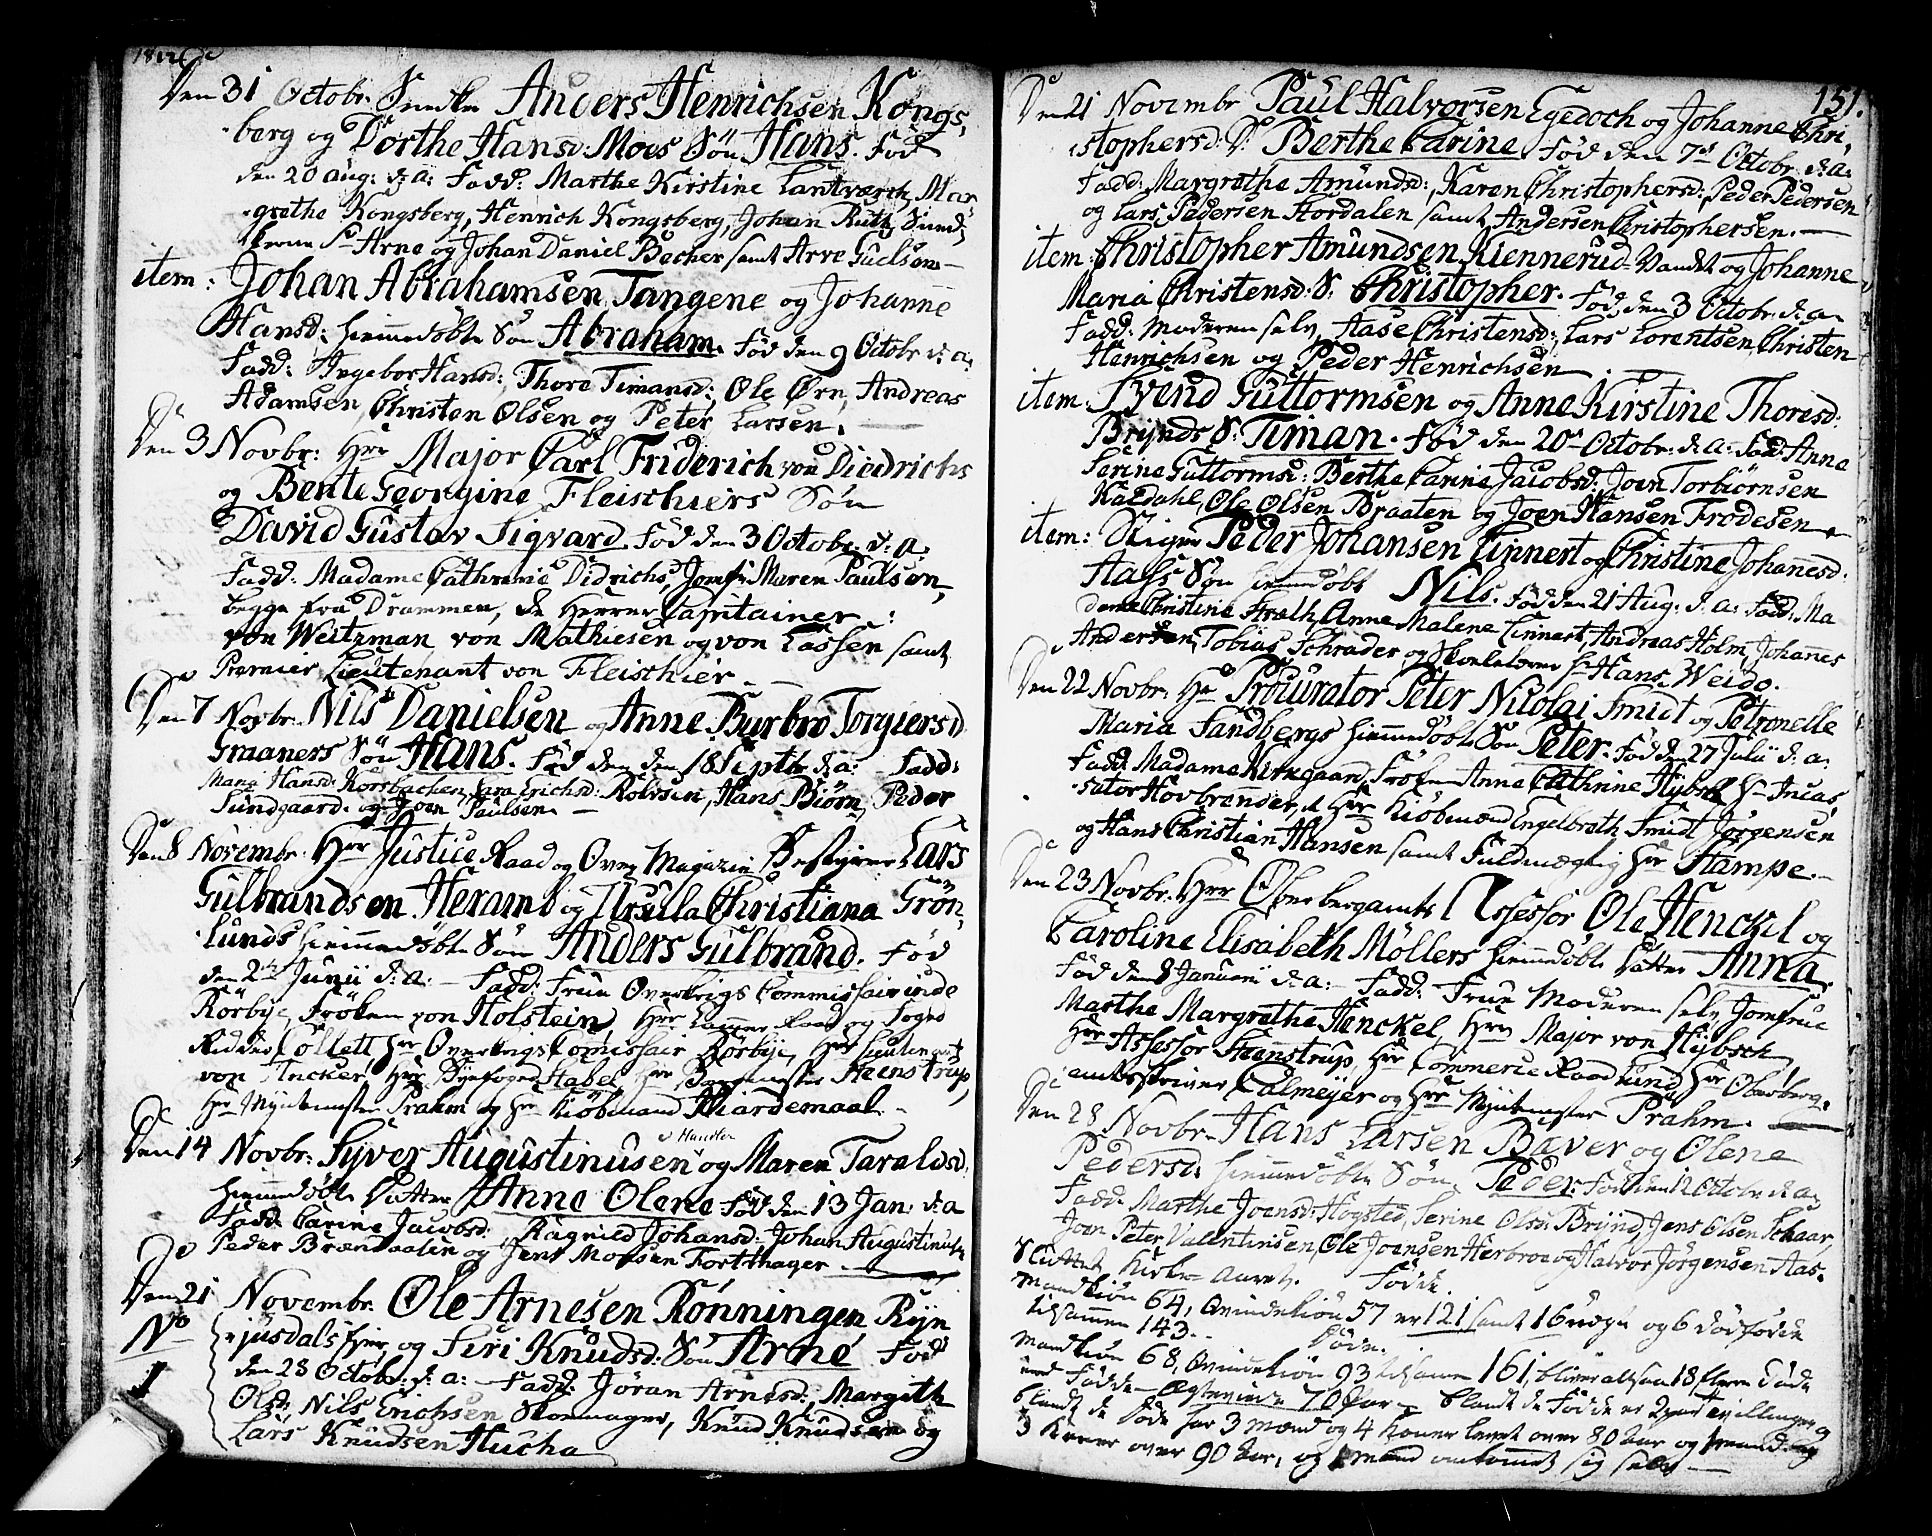 Den 31 Octobr. Snedker Anders Henrichsen Kongs,
berg og Dorthe Hansd: Moes Søn Hans. Fød
den 20 aug: d: a: Fadd: Marthe Kirstine Lantværch, Mar
grethe Kongsberg, Henrich Kongsberg, Johan Rütz, Sned,
kerne Sr Arne og Johan Daniel Becher samt Arve Guelsen
item: Johan Abrahamsen Tangene og Johanne
Hansd: hiemmedøbte Søn Abraham. Fød den 9 Octobr d: a:
Fadd: Ingebor Hansd: Thore Timansd: Ole Ørn, Andreas
Adamsen, Christen Olsen og Peter Larsen.
Den 3 Novbr: Hrr Major Carl Friderich von Diedrichs
og Bente Georgine Fleischiers Søn
David Güstav Sigvard. Fød den 3 Octobr. d: a.
Fadd. Madame Cathrine Didrichs, Jomfr: Maren Paulsen,
begge fra Drammen, de Herrer Capitainer:
von Weitzman von Mathiesen og von Lassen samt
Premier Lieutenant von Fleischier.
Den 7 Novbr. Nils Danielsen og Anne Burbro Torgiersd
Graaners Søn Hans. Fød den den 18 Septbr d: a: Fadd:
Maria Hansd: Korsbachen, Sara Erichsd: Robrsen, Hans Biörn, Peder
Sundgaard. og Joen Paulsen.
Den 8 Novembr. Herr Justice Raad og Over Magazin Bestyrer Lars
Gulbrandsen Heramb og Ursula Christiana Grön,
lunds hiemmedøbte Søn Anders Gülbrand. Fød
den 2den Junii d: a: Fadd: Frue Overkrigs Commissairinde
Rörbye, Frøken von Holstein, Herr Cammer Raad og Foged
Ridder Collett Hrr Overkrigs Comissair Rörbye, Hrr Lieutenant
von Ancker, Hrr Byefoged Stabel, Hrr Bergmester Steenstrup,
Hrr Myntmester Prahm og Hr Kiöbmand Kiardemaal.
Handler
Den 14 Novbr: Syver Augustinusen og Maren Taraldsd,
hiemmedøbte Datter Anne Olene Fød den 13 Jan. d: a
Fadd: Carine Jacobsd: Ragnild Johansd: Johan Augustinusen
Peder Brændaalin og Jens Monsen Forthager.
Den 21 Novembr. Ole Arnesen Rønningen Ryn
No 1 jusdals fier og Siri Knudsd: Søn Arne Fød
den 28 Octobr. d: a: Fadd: Jöran Arnesd: Margith
Olsd: Nils Erichsen Skomager, Knüd Knüdsen og
Lars Knüdsen Hucha
151.
Den 21 Novembr Paul Halvorsen Egedoch og Johanne Chri,
stophersd: D: Berthe Carine. Fød den 7de Octobr: d: a:
Fadd: Margrethe Amundsd: Karen Christophersd: Peder Pedersen
og Lars Pedersen Hordalen samt Andersen Christophersen.
item Christopher Amundsen Kiennerud-Vandet og Johanne
Maria Christensd: S: Christopher. Fød den 3 Octobr: d: a.
Fadd: Moderen selv, Aase Christensd: Lars Lorentsen, Christen
Henrichsen og Peder Henrichsen.
item. Svend Güttormsen og Anne Kirstine Thoresd:
Brynds S: Timan. Fød den 20de Octobr: d: a: Fad: Anne
Serine Guttormsd: Berthe Carine Jacobsd: Joen Torbiörnsen
Kaldahl, Ole Olsen Braaten og Joen Hansen Frodesen
item: Stiger Peder Johansen Linnert og Christine Johanesd.
Aass Søn hiemmedøbt Nils. Fød den 21 Aug: d: a: Fadd: Ma
dame Christine Fræth, Anne Malene Linnert, Andreas Holm, Johannes
Andersen, Tobias Schrader og Skolelærer Hr Hans Weido.
Den 22 Novbr: Hr Procurator Peter Nicolai Smidt og Petronelle
Maria Sandbergs hiemmedøbte Søn Peter. Fød den 27 Julii d: a:
Fadd: Madame Kirkgaard, Frøken Anna Cathrine Hybsch Hr Incas,
sator Hovbrender, Hrr Kiöbmænd Engelbreth Smidt Jörgensen
og Hans Christian Hansen samt Fuldmægtig Hr Stampe.
Den 23 Novbr. Hrr Oberbergamts Assessor Ole Henckel og
Caroline Elisabeth Möllers hiemmedøbte Datter Anna.
Fød den 8 Januarii d: a: Fadd: Frue Moderen selv, Jomfrue
Marthe Margrethe Henckel, Hrr Major von Hybsch
Hrr Assessor Steenstrup, Hrr Commerce Raad Lund Hrr Oberberg,
amtsskriver Calmeyer og Hrr Myntmester Prahm.
Den 28 Novbr. Hans Larsen Bæver og Olene
Pedersd: hiemmedøbte Søn Peder. Fød den 12 Octobr d: a:
Fadd: Marthe Joensd: Høgsted, Serine Olsd: Brynd, Jens Olsen Schaar,
Joen Peter Valentinsen, Ole Joensen Herbroe og Halvor Jörgensen Aas.
Sluttet Kirke Aaret. Födde
Mandkiön 64, Qvindekiön 57 er 121 samt 16 uægte og 6 dødfødde
tilsammen 143. Døde.
Mandkiön 68, Qvindekiön 93 tilsamen 161, bliver altsaa 18 flere Døde
end Fødde Egteviede 70 Par Blandt de Fødde er 2 par Tvillinger og
blandt de døde har 3 mænd og 4 koner levet over 80 Aar og
3 koner over 90 Aar, og 1 mand omkomet sig selv